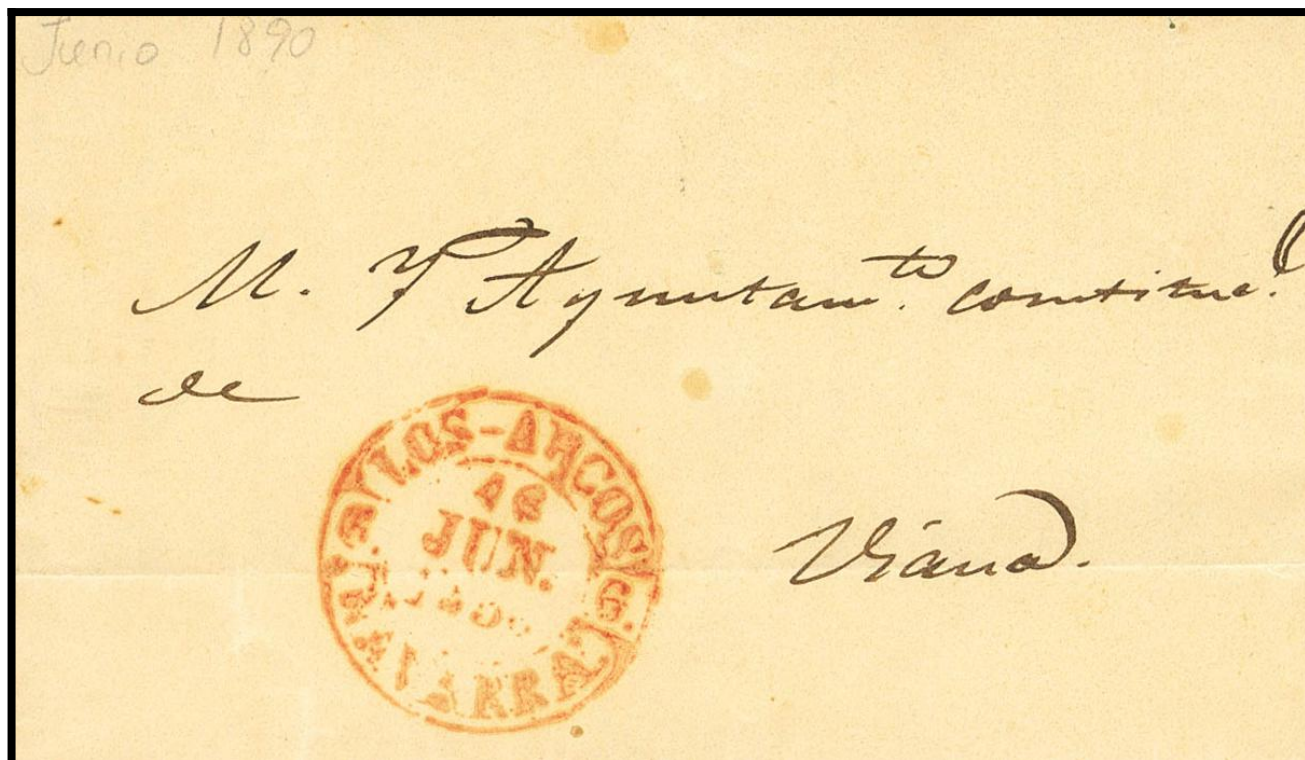 Junio 1890
M. Y Ayuntam.to constituc.l
de
LOS-ARCOS
16
JUN.
NAVARRA.
Viana.